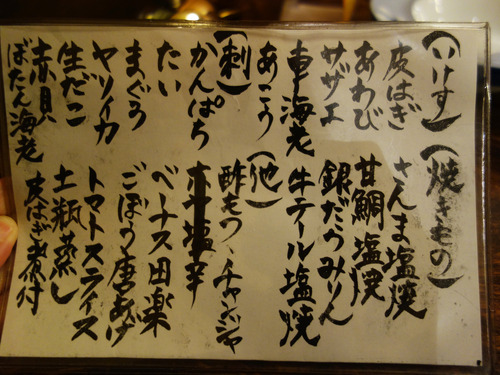 （いけす）
皮はぎ
あわび
サザエ
車海老
あこう
（刺）
かんぱち
たい
まぐろ
ヤリイカ
生だこ
赤貝
ぼたん海老
（焼きもの）
さんま塩焼
甘鯛塩焼
銀だらみりん
牛テール塩焼
（他）
酢もつ チャンジャ
ホヤ塩辛
ベーナス田楽
ごぼう唐あげ
トマトスライス
土瓶蒸し
皮はぎ煮付